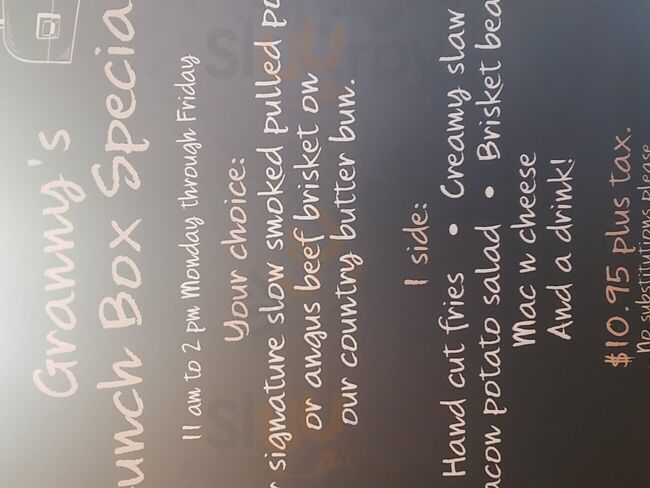 Granny's
unch Box Specia
11 am to 2 pm Monday through Friday
Your choice:
r signature slow smoked pulled po
or angus beef brisket on
our country butter bun.
1 side:
Hand cut fries • Creamy slaw
acon potato salad • Brisket bea
Mac n cheese
And a drink!
$10.95 plus tax.
No substitutions please
Sluurpy
Sluurpy